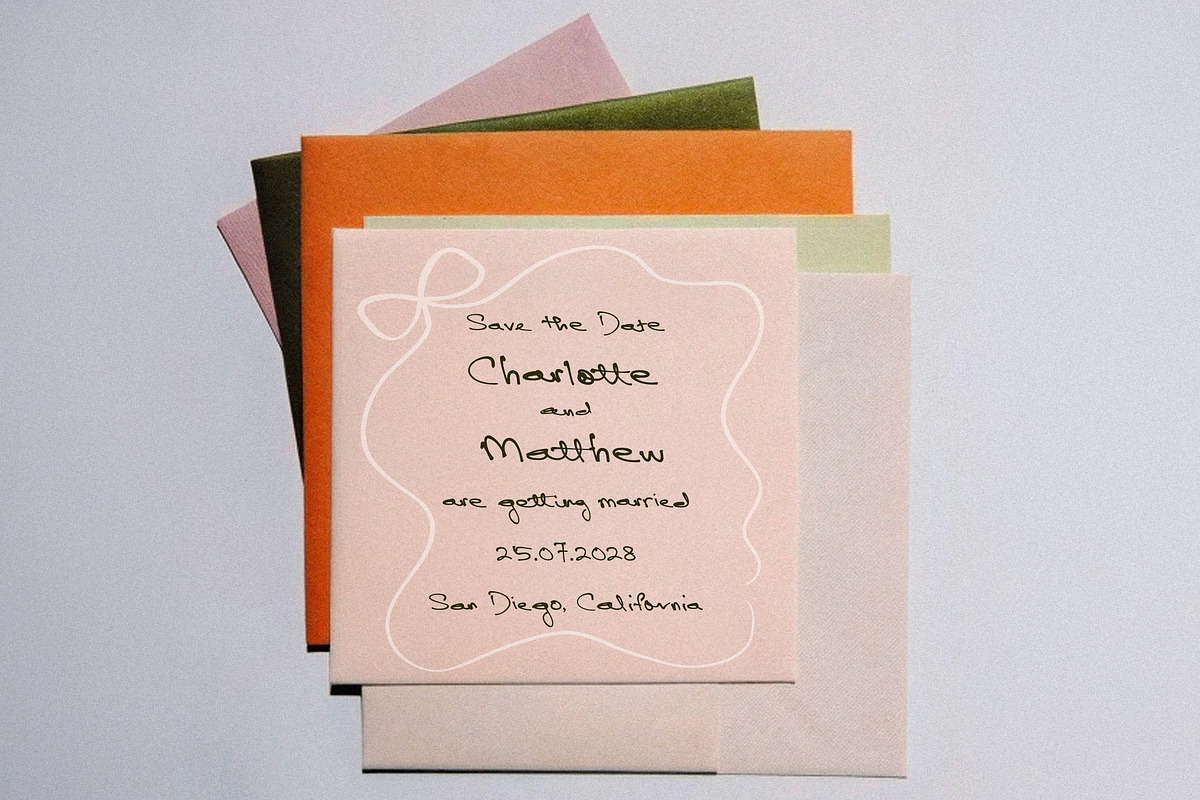 Save the Date
Charlotte
and
Matthew
are getting married
25.07.2028
San Diego, California